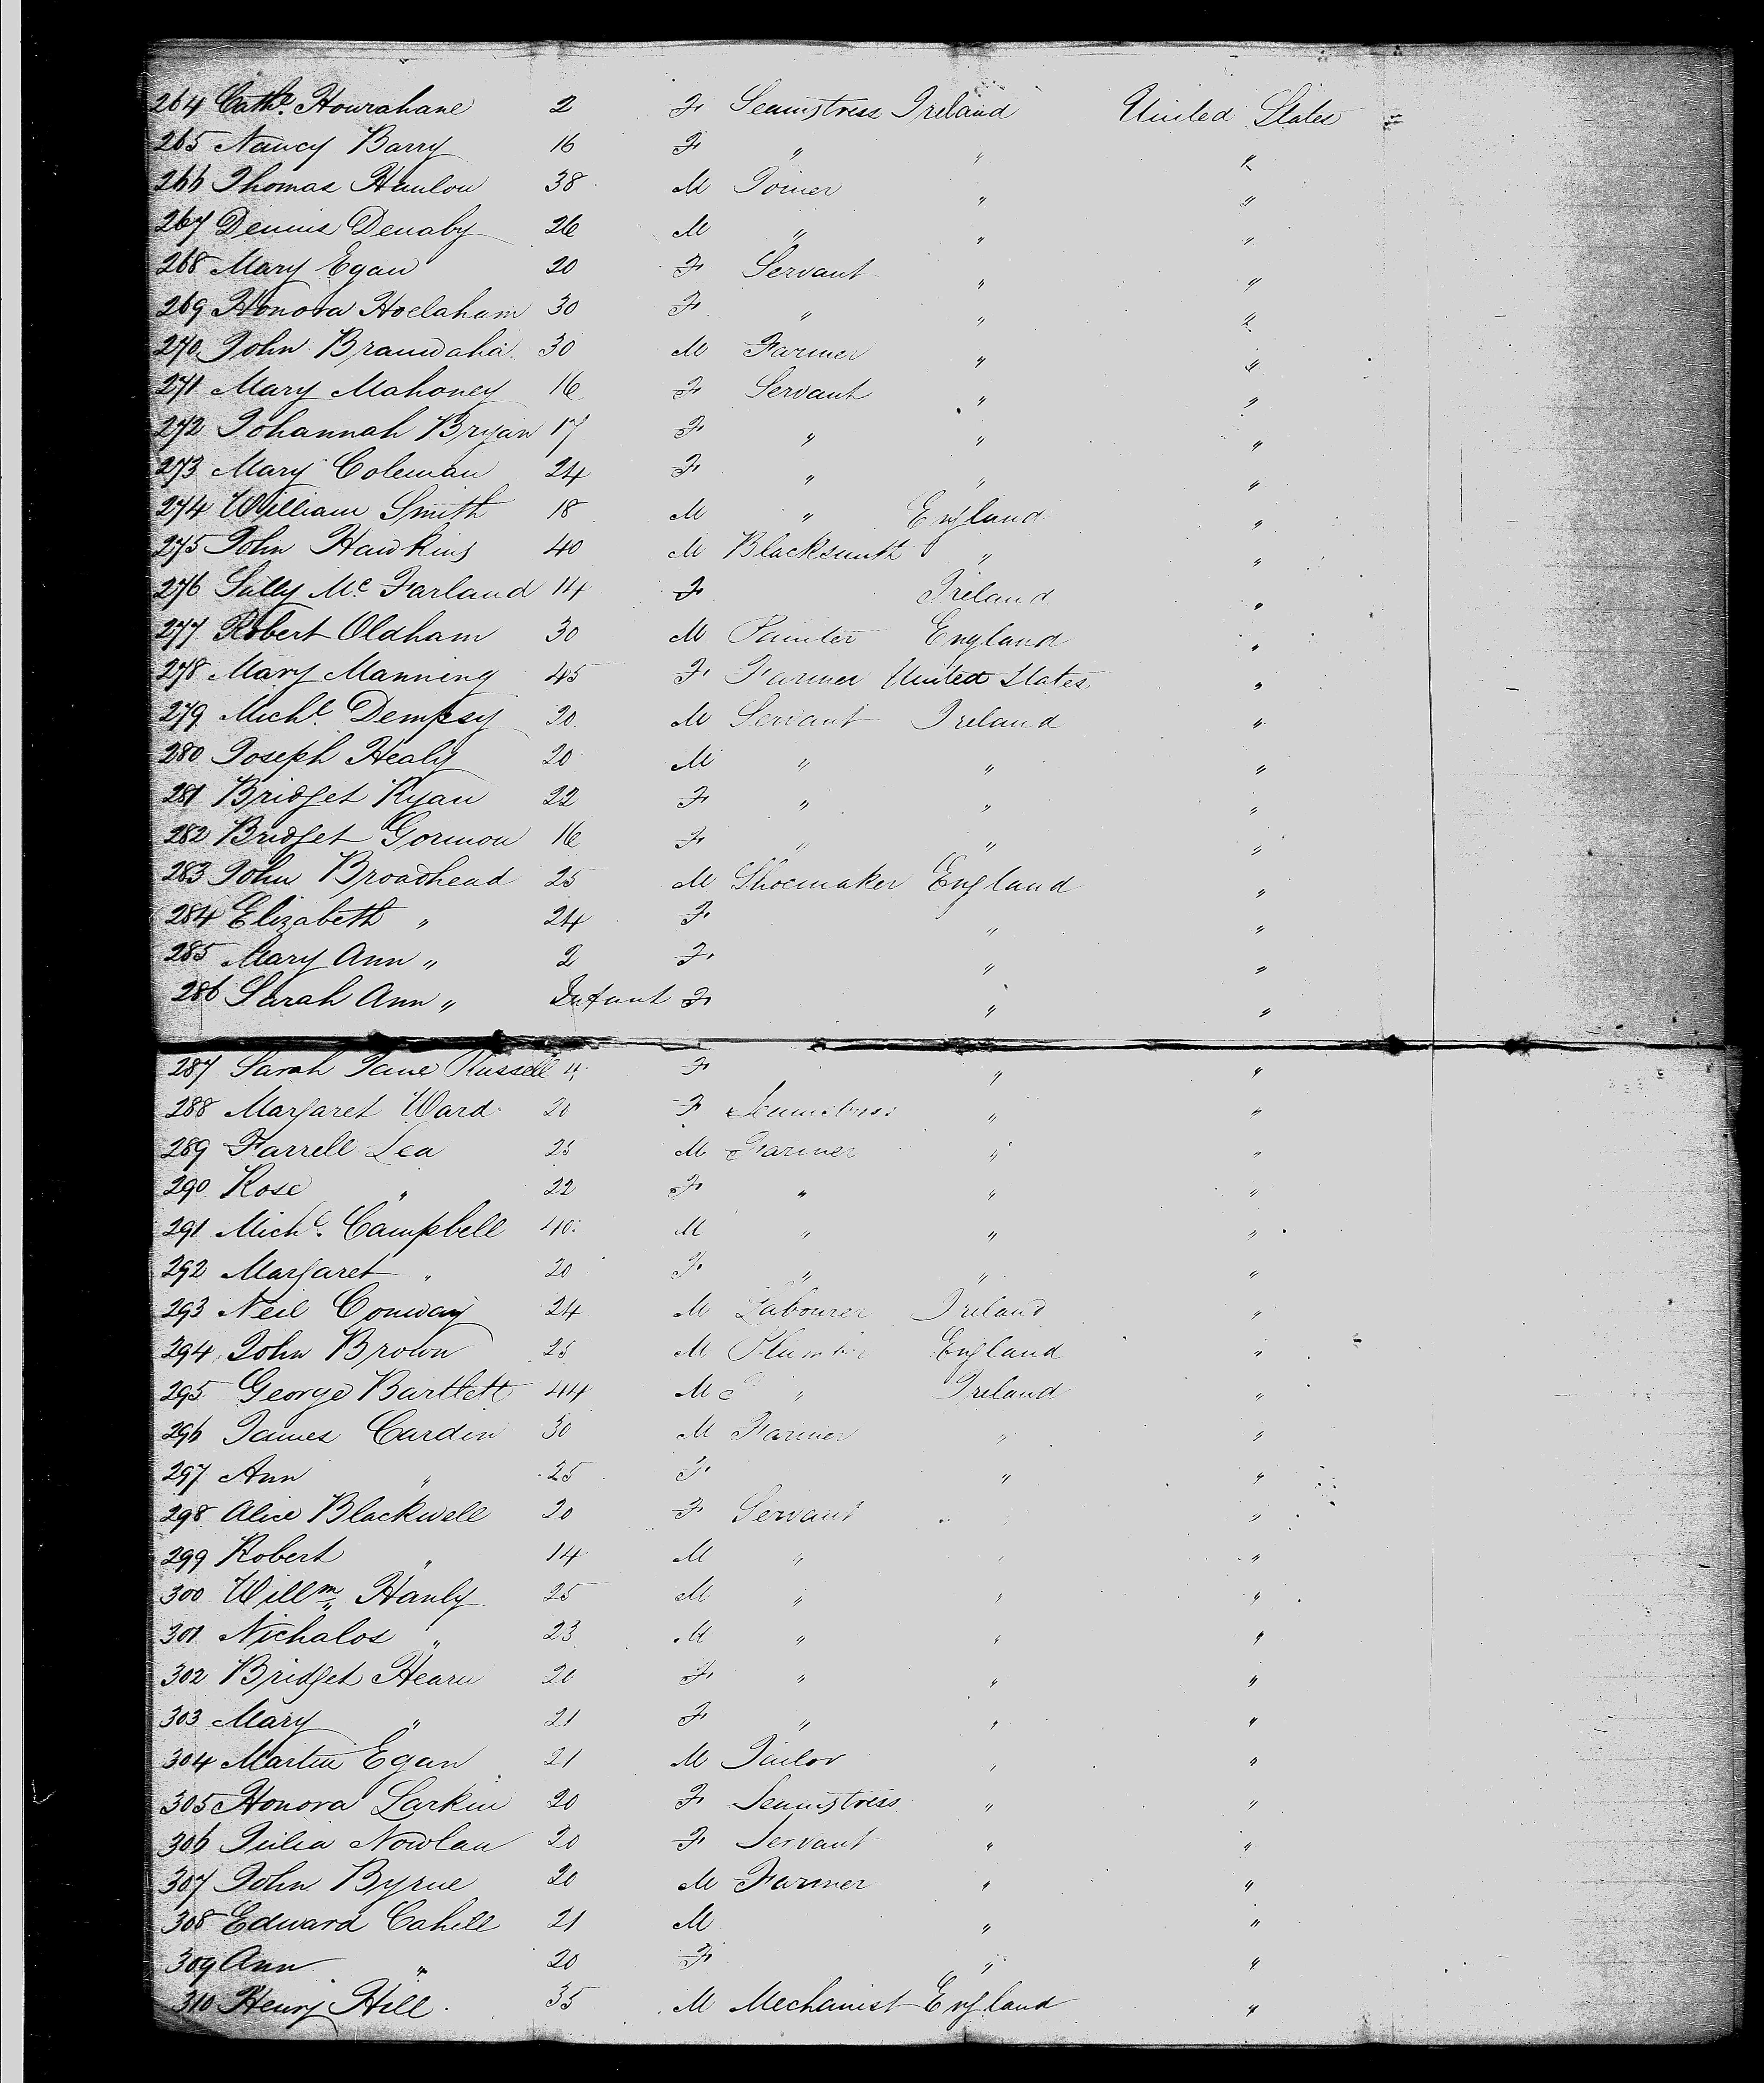 264 Cathe. Hourahane 2 F Seamstress Ireland United States
265 Nancy Barry 16 F " " "
266 Thomas Hanlon 38 M Joiner " "
267 Dennis Denaby 26 M " " "
268 Mary Egan 20 F Servant " "
269 Honora Hoelaham 30 F " " "
270 John 30 M Farmer " "
271 Mary Mahoney 16 F Servant " "
272 Johannah Bryan 17 F " " "
273 Mary Coleman 24 F " " "
274 William Smith 18 M " England "
275 John Hawkins 40 M Blacksmith " "
276 Sally Mc Farland 14 F Ireland "
277 Robert Oldham 30 M Painter England "
278 Mary Manning 45 F Farmer United States "
279 Michl Dempsy 20 M Servant Ireland "
280 Joseph Healy 20 M " " "
281 Bridget Ryan 22 F " " "
282 Bridget Gormon 16 F " " "
283 John Broadhead 25 M Shoemaker England "
284 Elizabeth " 24 F " "
285 Mary Ann " 2 F " "
286 Sarah Ann " Infant F " "
287 Sarah Jane Russell F " "
288 Margaret Ward 20 F Seamstress " "
289 Farrell Lea 25 M Farmer " "
290 Rose " 22 F " " "
291 Michl Campbell 40 M " " "
292 Margaret " 20 F " " "
293 Neil Conway 24 M Labourer Ireland "
294 John Brown 25 M Plumber England "
295 George Bartlett 44 M " Ireland "
296 James Cardin 30 M Farmer " "
297 Ann " 25 F " "
298 Alice Blackwell 20 F Servant " "
299 Robert " 14 M " " "
300 Willm Hanly 25 M " " "
301 Nichalos " 23 M " " "
302 Bridget Hearn 20 F " " "
303 Mary " 21 F " " "
304 Martin Egan 21 M Tailor " "
305 Honora Larkin 20 F Seamstress " "
306 Julia Nowlan 20 F Servant " "
307 John Byrne 20 M Farmer " "
308 Edward Cahill 21 M " "
309 Ann " 20 F " "
310 Henry Hill 35 M Mechanist England "